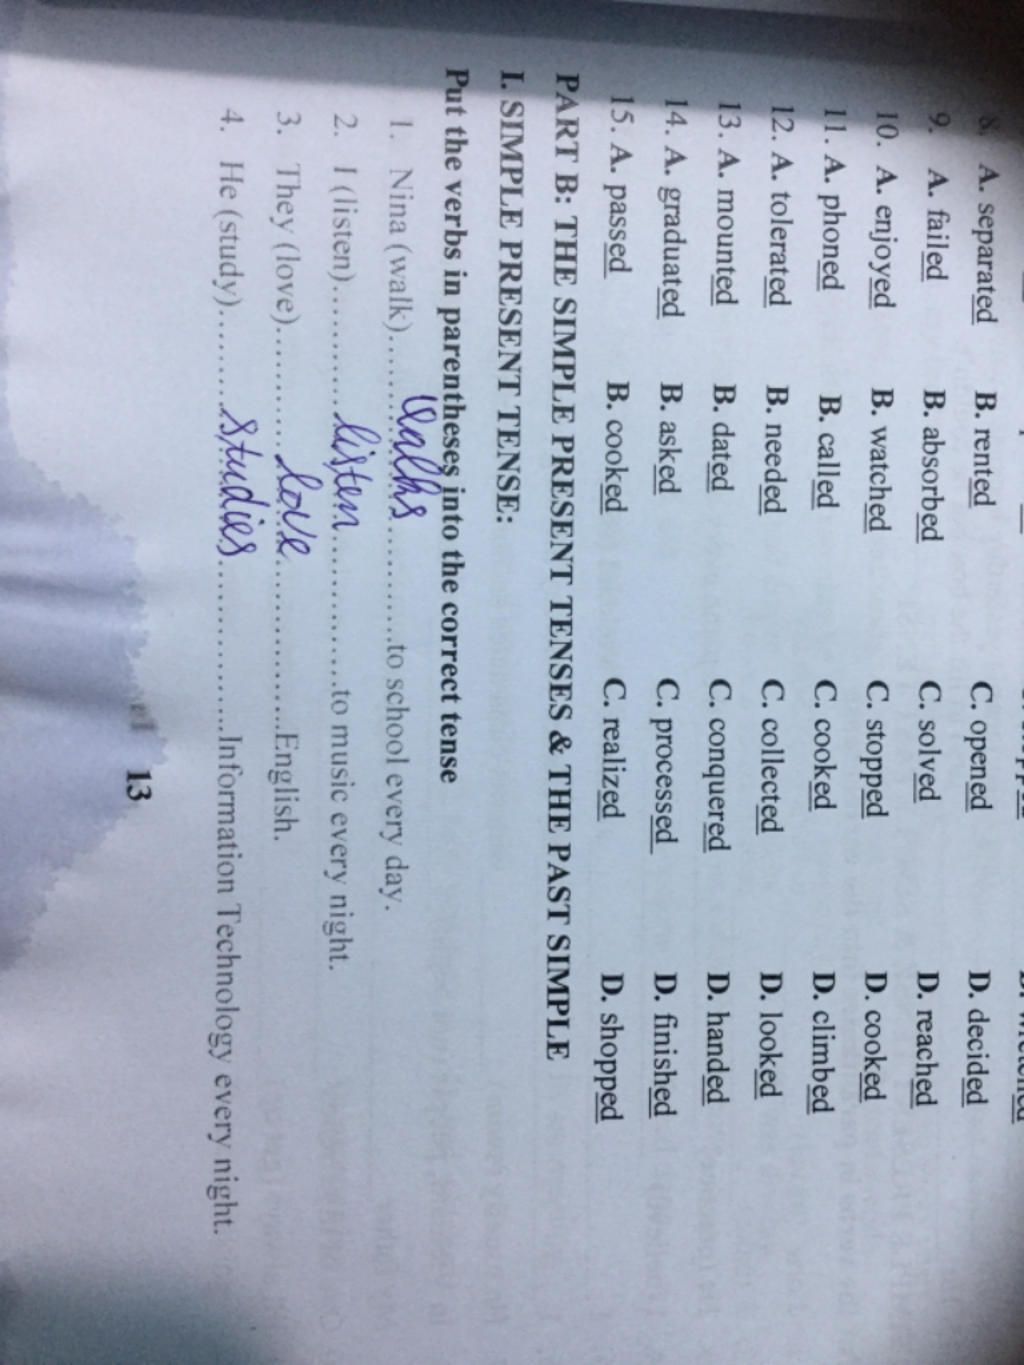 8. A. separated B. rented C. opened D. decided
9. A. failed B. absorbed C. solved D. reached
10. A. enjoyed B. watched C. stopped D. cooked
11. A. phoned B. called C. cooked D. climbed
12. A. tolerated B. needed C. collected D. looked
13. A. mounted B. dated C. conquered D. handed
14. A. graduated B. asked C. processed D. finished
15. A. passed B. cooked C. realized D. shopped
PART B: THE SIMPLE PRESENT TENSES & THE PAST SIMPLE
I. SIMPLE PRESENT TENSE:
Put the verbs in parentheses into the correct tense
1. Nina (walk)........walks..........to school every day.
2. I (listen)..........listen............to music every night.
3. They (love)..........love............English.
4. He (study)........studies............Information Technology every night.
13